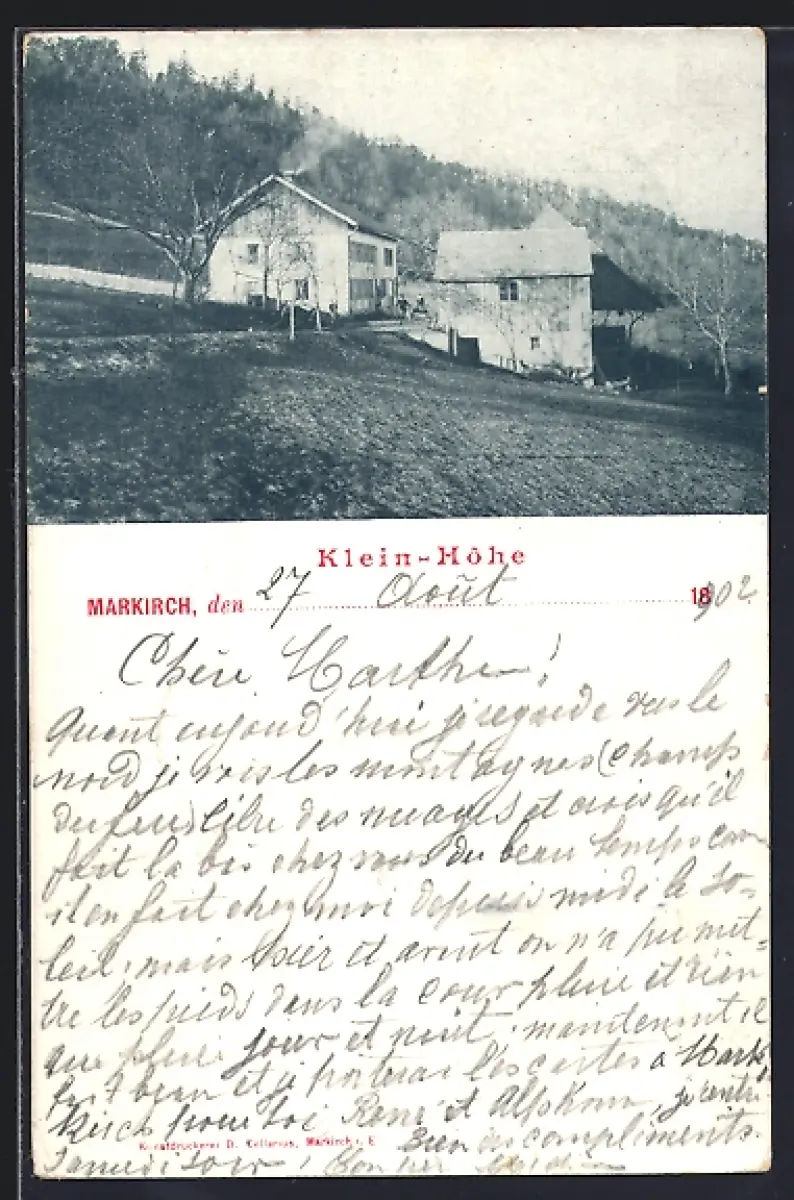 Klein-Höhe
MARKIRCH, den 27 Août 1902
Chère Marthe!
Quant aujourd'hui je regarde vers le
nord je vois les montagnes (champs
du feu) libre des nuages et crois qu'il
fait la bas chez vous du beau temps car
il en fait chez moi depuis midi le so-
leil, mais hier et avant on n'a pu met-
tre les pieds dans la cour pluie et rien
que pluie jour et nuit, maintenant il
fait beau et je porterai les cartes à Mark
kirch pour toi René et, je rentre
Kunstdruckerei D. Cellarius, Markirch i. E.
Bien des compliments.
Samedi soir! Ton